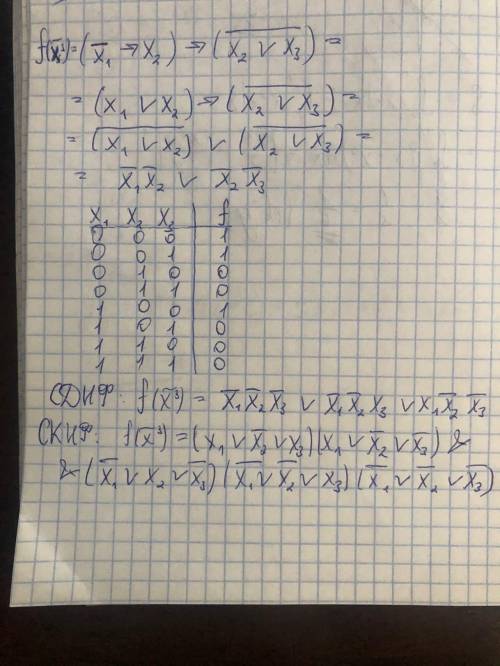 f(x̃³) = (x̄₁ → x₂) → (\overline{x₂ ∨ x₃}) =
= (x₁ ∨ x₂) → (\overline{x₂ ∨ x₃}) =
= (\overline{x₁ ∨ x₂}) ∨ (\overline{x₂ ∨ x₃}) =
= x̄₁x̄₂ ∨ x̄₂x̄₃
x₁ x₂ x₃ | f
0 0 0 | 1
0 0 1 | 1
0 1 0 | 0
0 1 1 | 0
1 0 0 | 1
1 0 1 | 0
1 1 0 | 0
1 1 1 | 0
СДНФ: f(x̃³) = x̄₁x̄₂x̄₃ ∨ x̄₁x̄₂x₃ ∨ x₁x̄₂x̄₃
СКНФ: f(x̃³) = (x₁ ∨ x̄₂ ∨ x₃)(x₁ ∨ x̄₂ ∨ x̄₃) &
& (x̄₁ ∨ x₂ ∨ x̄₃)(x̄₁ ∨ x̄₂ ∨ x₃)(x̄₁ ∨ x̄₂ ∨ x̄₃)